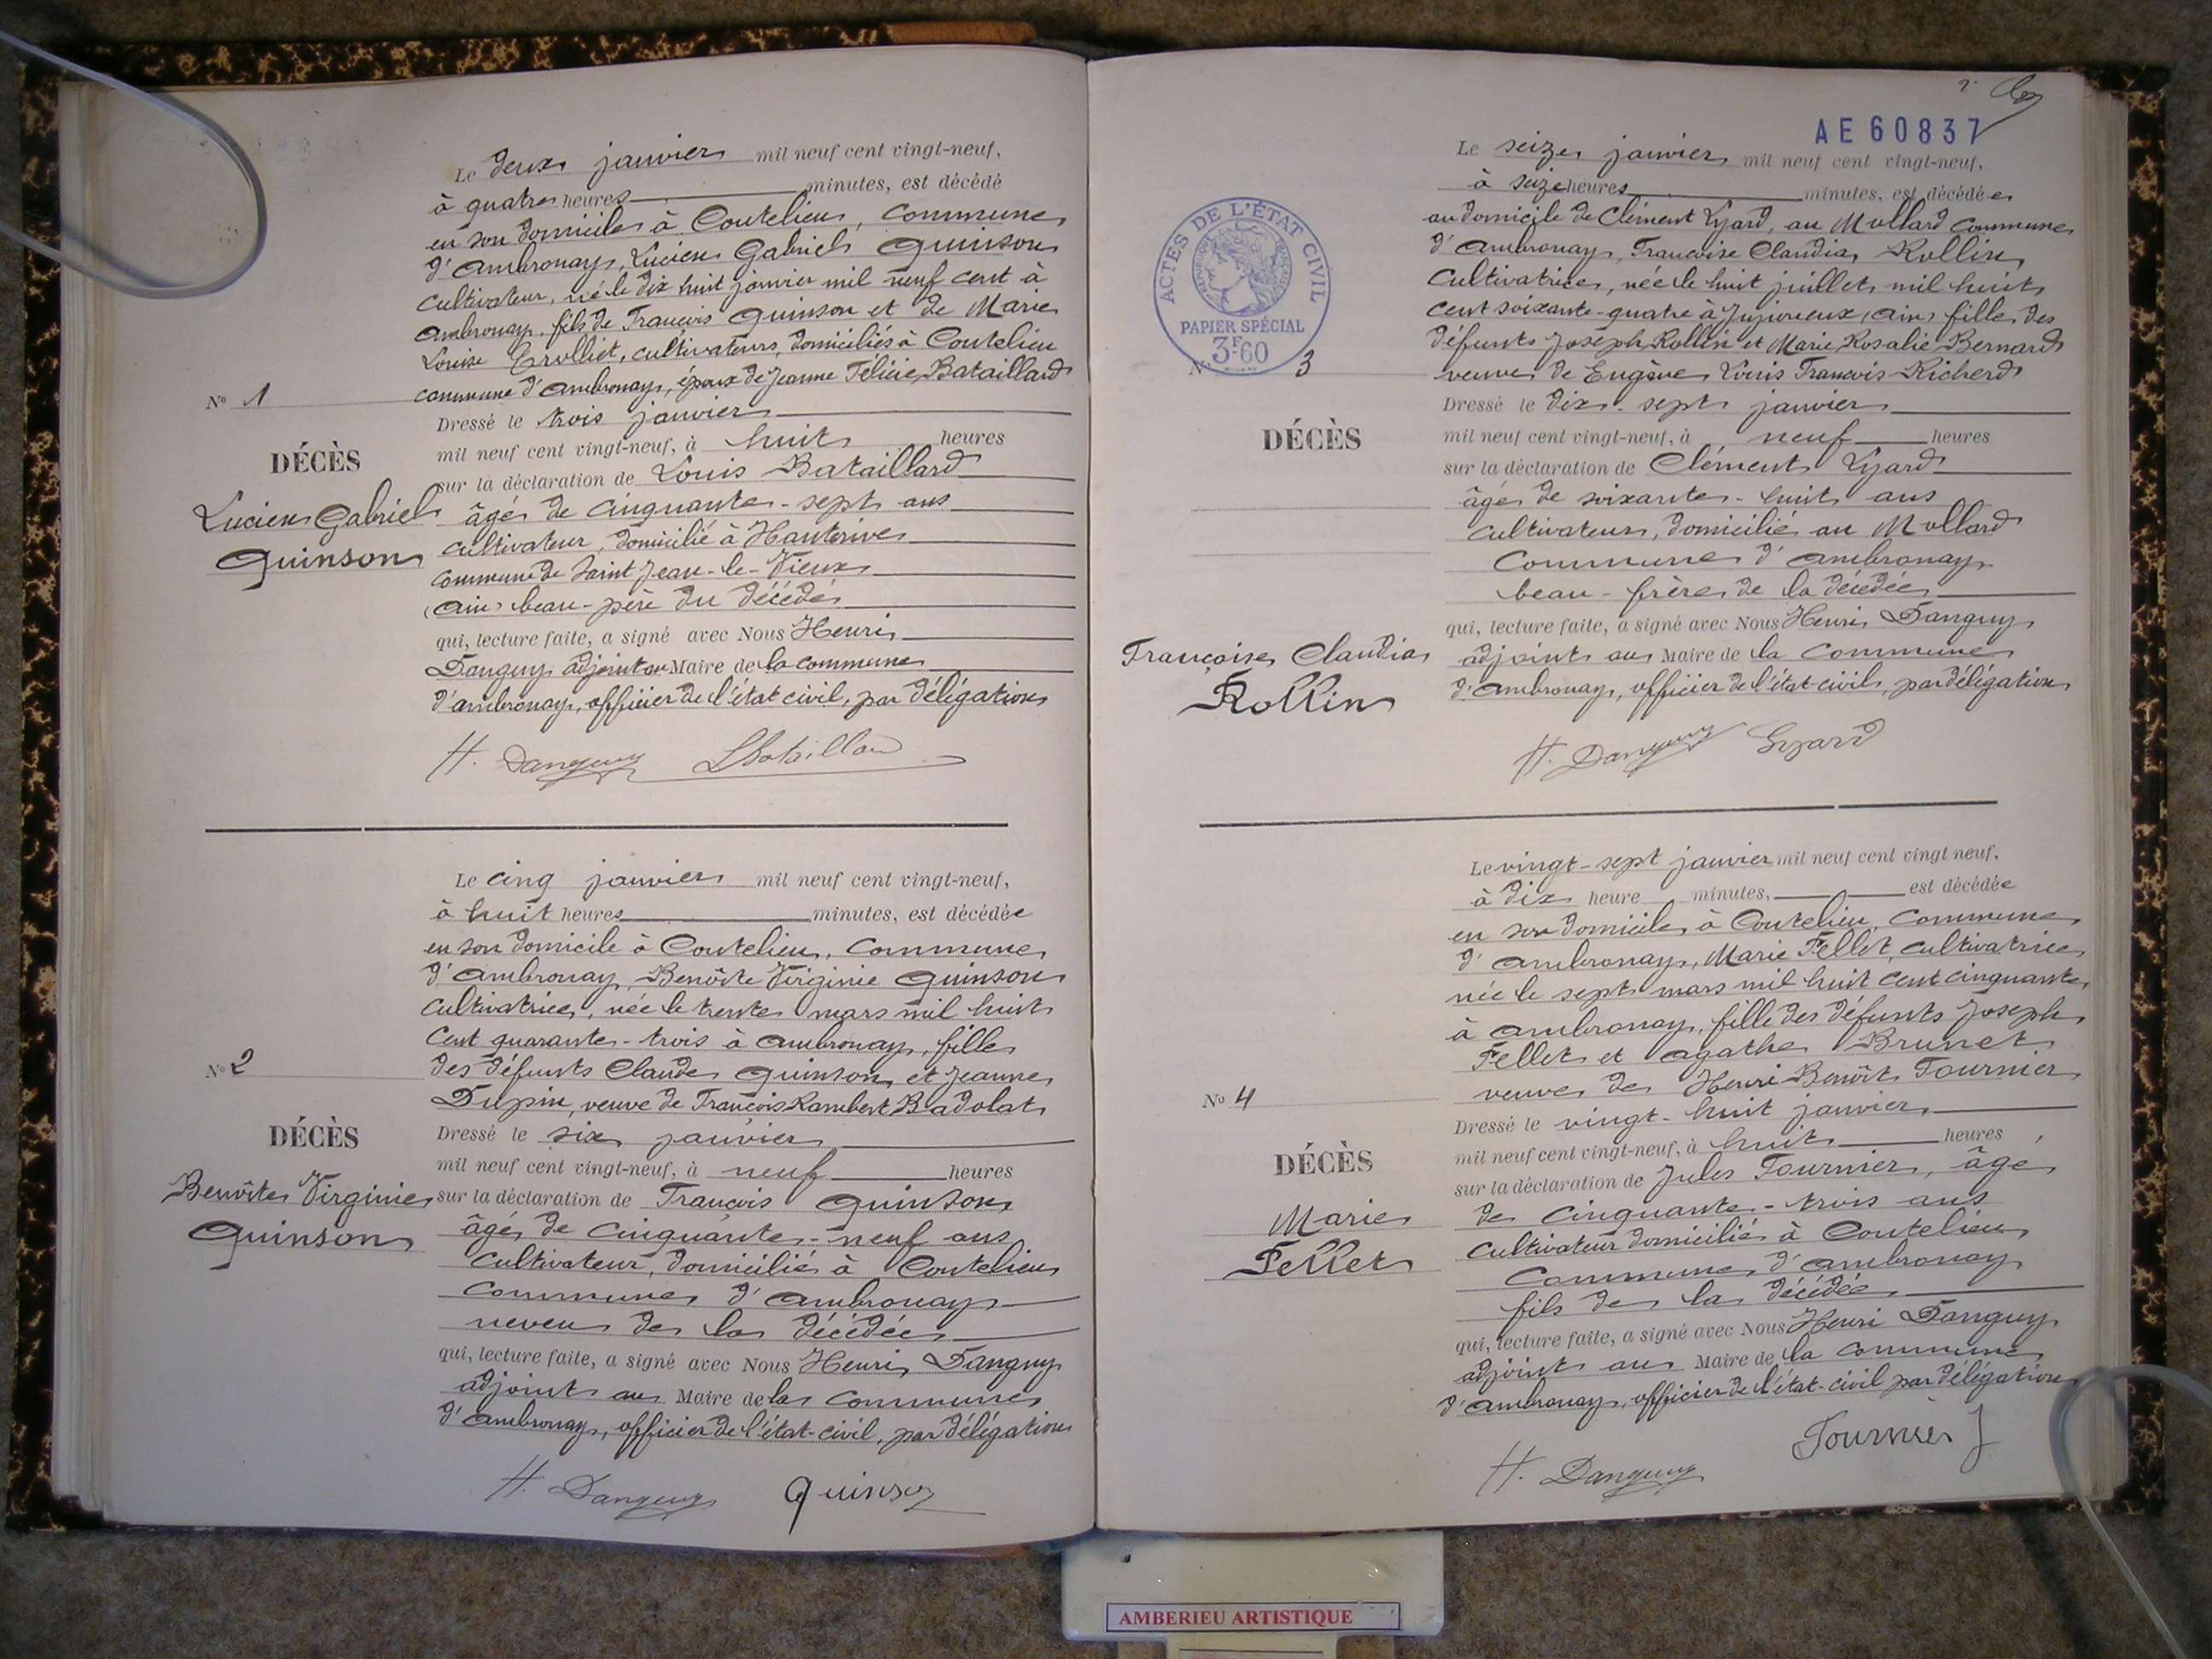 Le deux janvier mil neuf cent vingt-neuf,
à quatre heures minutes, est décédé
en son domicile à Coutelieu, commune
d'Ambronay, Lucien Gabriel Quinson
cultivateur, né le dix huit janvier mil neuf cent à
Ambronay, fils de François Quinson et de Marie
Louise Crolliet, cultivateurs, domiciliés à Coutelieu
commune d'Ambronay, époux de Jeanne Félicie Bataillard
N° 1
Dressé le trois janvier
mil neuf cent vingt-neuf, à huit heures
DÉCÈS
sur la déclaration de Louis Bataillard
Lucien Gabriel
Quinson
âgé de cinquante-sept ans
cultivateur, domicilié à Hauterive
commune de Saint Jean-le-Vieux
(Ain) beau-père du décédé
qui, lecture faite, a signé avec Nous Henri
Danguy adjoint au Maire de la commune
d'Ambronay, officier de l'état civil, par délégation
H. Danguy LBataillard
Le cinq janvier mil neuf cent vingt-neuf,
à huit heures minutes, est décédée
en son domicile à Coutelieu, commune
d'Ambronay, Benoîte Virginie Quinson
cultivatrice, née le trente mars mil huit
cent quarante-trois à Ambronay, fille
des défunts Claude Quinson et Jeanne
Dupin, veuve de François Rambert Badolat
N° 2
DÉCÈS
Benoîte Virginie
Quinson
Dressé le six janvier
mil neuf cent vingt-neuf, à neuf heures
sur la déclaration de François Quinson
âgé de cinquante-neuf ans
cultivateur, domicilié à Coutelieu
commune d'Ambronay
neveu de la décédée
qui, lecture faite, a signé avec Nous Henri Danguy
adjoint au Maire de la commune
d'Ambronay, officier de l'état-civil, par délégation
H. Danguy Quinson
AE 60837
Le seize janvier mil neuf cent vingt-neuf,
à seize heures minutes, est décédée
au domicile de Clément Lyard, au Mollard commune
d'Ambronay, Françoise Claudia Rollin
cultivatrice, née le huit juillet mil huit
cent soixante-quatre à Jujurieux (Ain) fille des
défunts Joseph Rollin et Marie Rosalie Bernard
veuve de Eugène Louis François Richerd
ACTES DE L'ÉTAT CIVIL
PAPIER SPÉCIAL
3F60
N° 3
DÉCÈS
Françoise Claudia
Rollin
Dressé le dix-sept janvier
mil neuf cent vingt-neuf, à neuf heures
sur la déclaration de Clément Lyard
âgé de soixante-huit ans
cultivateur, domicilié au Mollard
commune d'Ambronay
beau-frère de la décédée
qui, lecture faite, a signé avec Nous Henri Danguy
adjoint au Maire de la commune
d'Ambronay, officier de l'état-civil, par délégation
H. Danguy Lyard
Le vingt-sept janvier mil neuf cent vingt neuf,
à dix heure minutes, est décédée
en son domicile à Coutelieu, commune
d'Ambronay, Marie Fellet, cultivatrice
née le sept mars mil huit cent cinquante
à Ambronay, fille des défunts Joseph
Fellet et Agathe Brunet
veuve de Henri Benoît Tournier
N° 4
DÉCÈS
Marie
Fellet
Dressé le vingt-huit janvier
mil neuf cent vingt-neuf, à huit heures
sur la déclaration de Jules Tournier, âgé
de cinquante-trois ans
cultivateur domicilié à Coutelieu
commune d'Ambronay
fils de la décédée
qui, lecture faite, a signé avec Nous Henri Danguy
adjoint au Maire de la commune
d'Ambronay, officier de l'état-civil par délégation
Tournier J
H. Danguy
AMBERIEU ARTISTIQUE